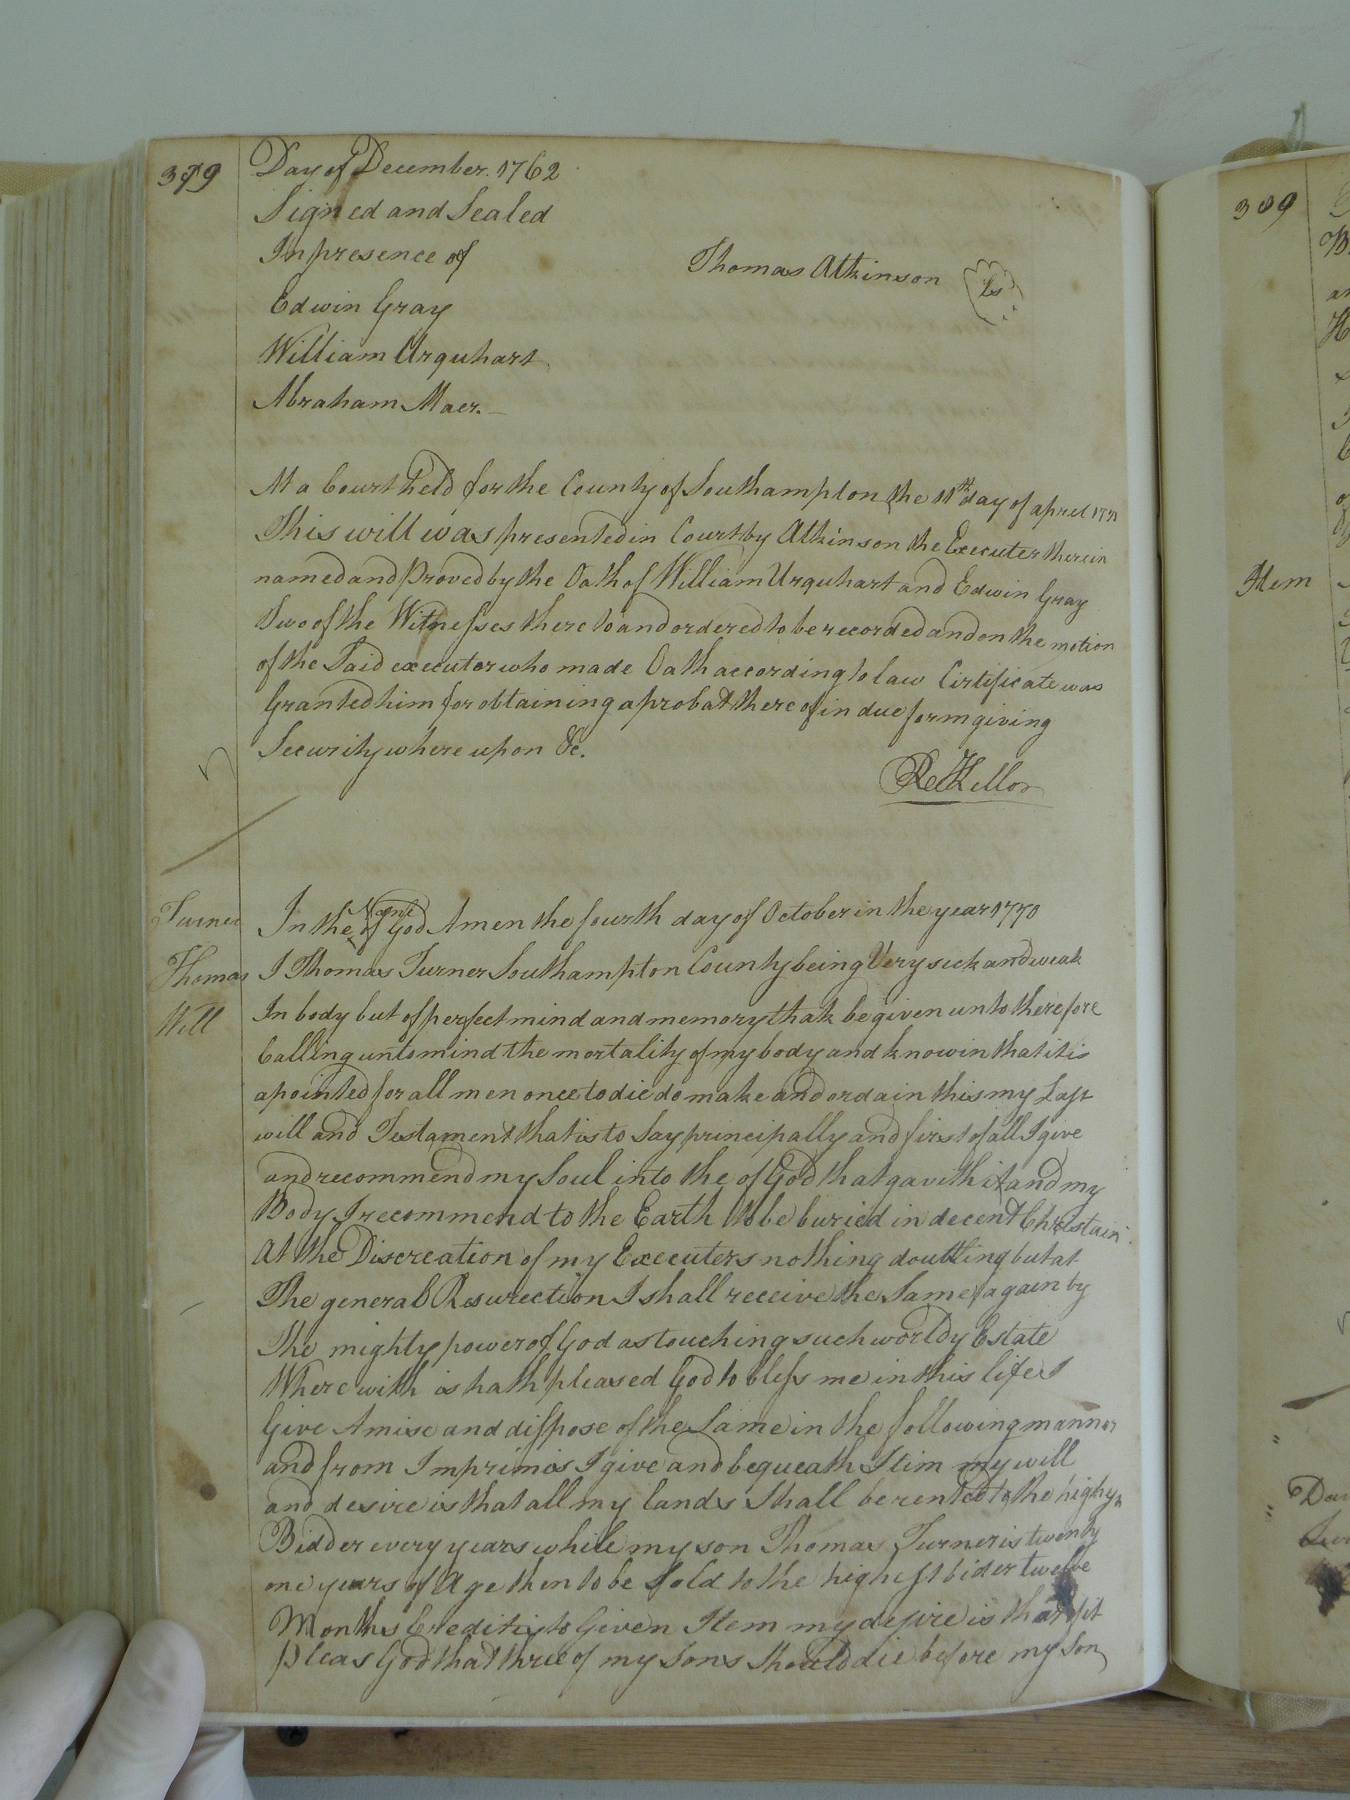 379
Day of December. 1762
Signed and Sealed
In presence of
Thomas Atkinson Ls
Edwin Gray
William Urquhart
Abraham Maer.
At a Court held for the County of Southampton the 11th day of april 1771
This will was presented in Court by Atkinson the Executer therein
named and Proved by the Oath of William Urquhart and Edwin Gray
Two of the Witnesses there to and ordered to be recorded and on the motion
of the Said executor who made Oath according to law Cirtificate was
Granted him for obtaining a probat there of in due form giving
Security where upon &c.
Turner
Thomas
Will
In the Name of God Amen the fourth day of October in the year 1770
I Thomas Turner Southampton County being Very sick and weak
In body but of perfect mind and memory thak be given unto therefore
Calling unto mind the mortality of my body and knowin that it is
apointed for all men once to die do make and ordain this my Last
will and Testament that is to Say principally and first of all I give
and recommend my Soul into the of God that gavith it and my
Body I recommend to the Earth to be buried in decent Christain
At the Discreation of my Executers nothing doutting but at
The general Resurection I shall receive the Same again by
The mighty power of God as touching such worldy Estate
Where with is hath pleased God to bless me in this life I
Give Amise and disspose of the Same in the following manner
and from Imprimis I give and bequeath Itim my will
and desire is that all my lands Shall be rented to the highy
Bidder every years while my son Thomas Turner is twenty
one years of Age then to be Sold to the highest bider twelve
Months Credit is to Given Item my desire is that if it
pleas God that three of my Sons Should die before my Son
309
Item